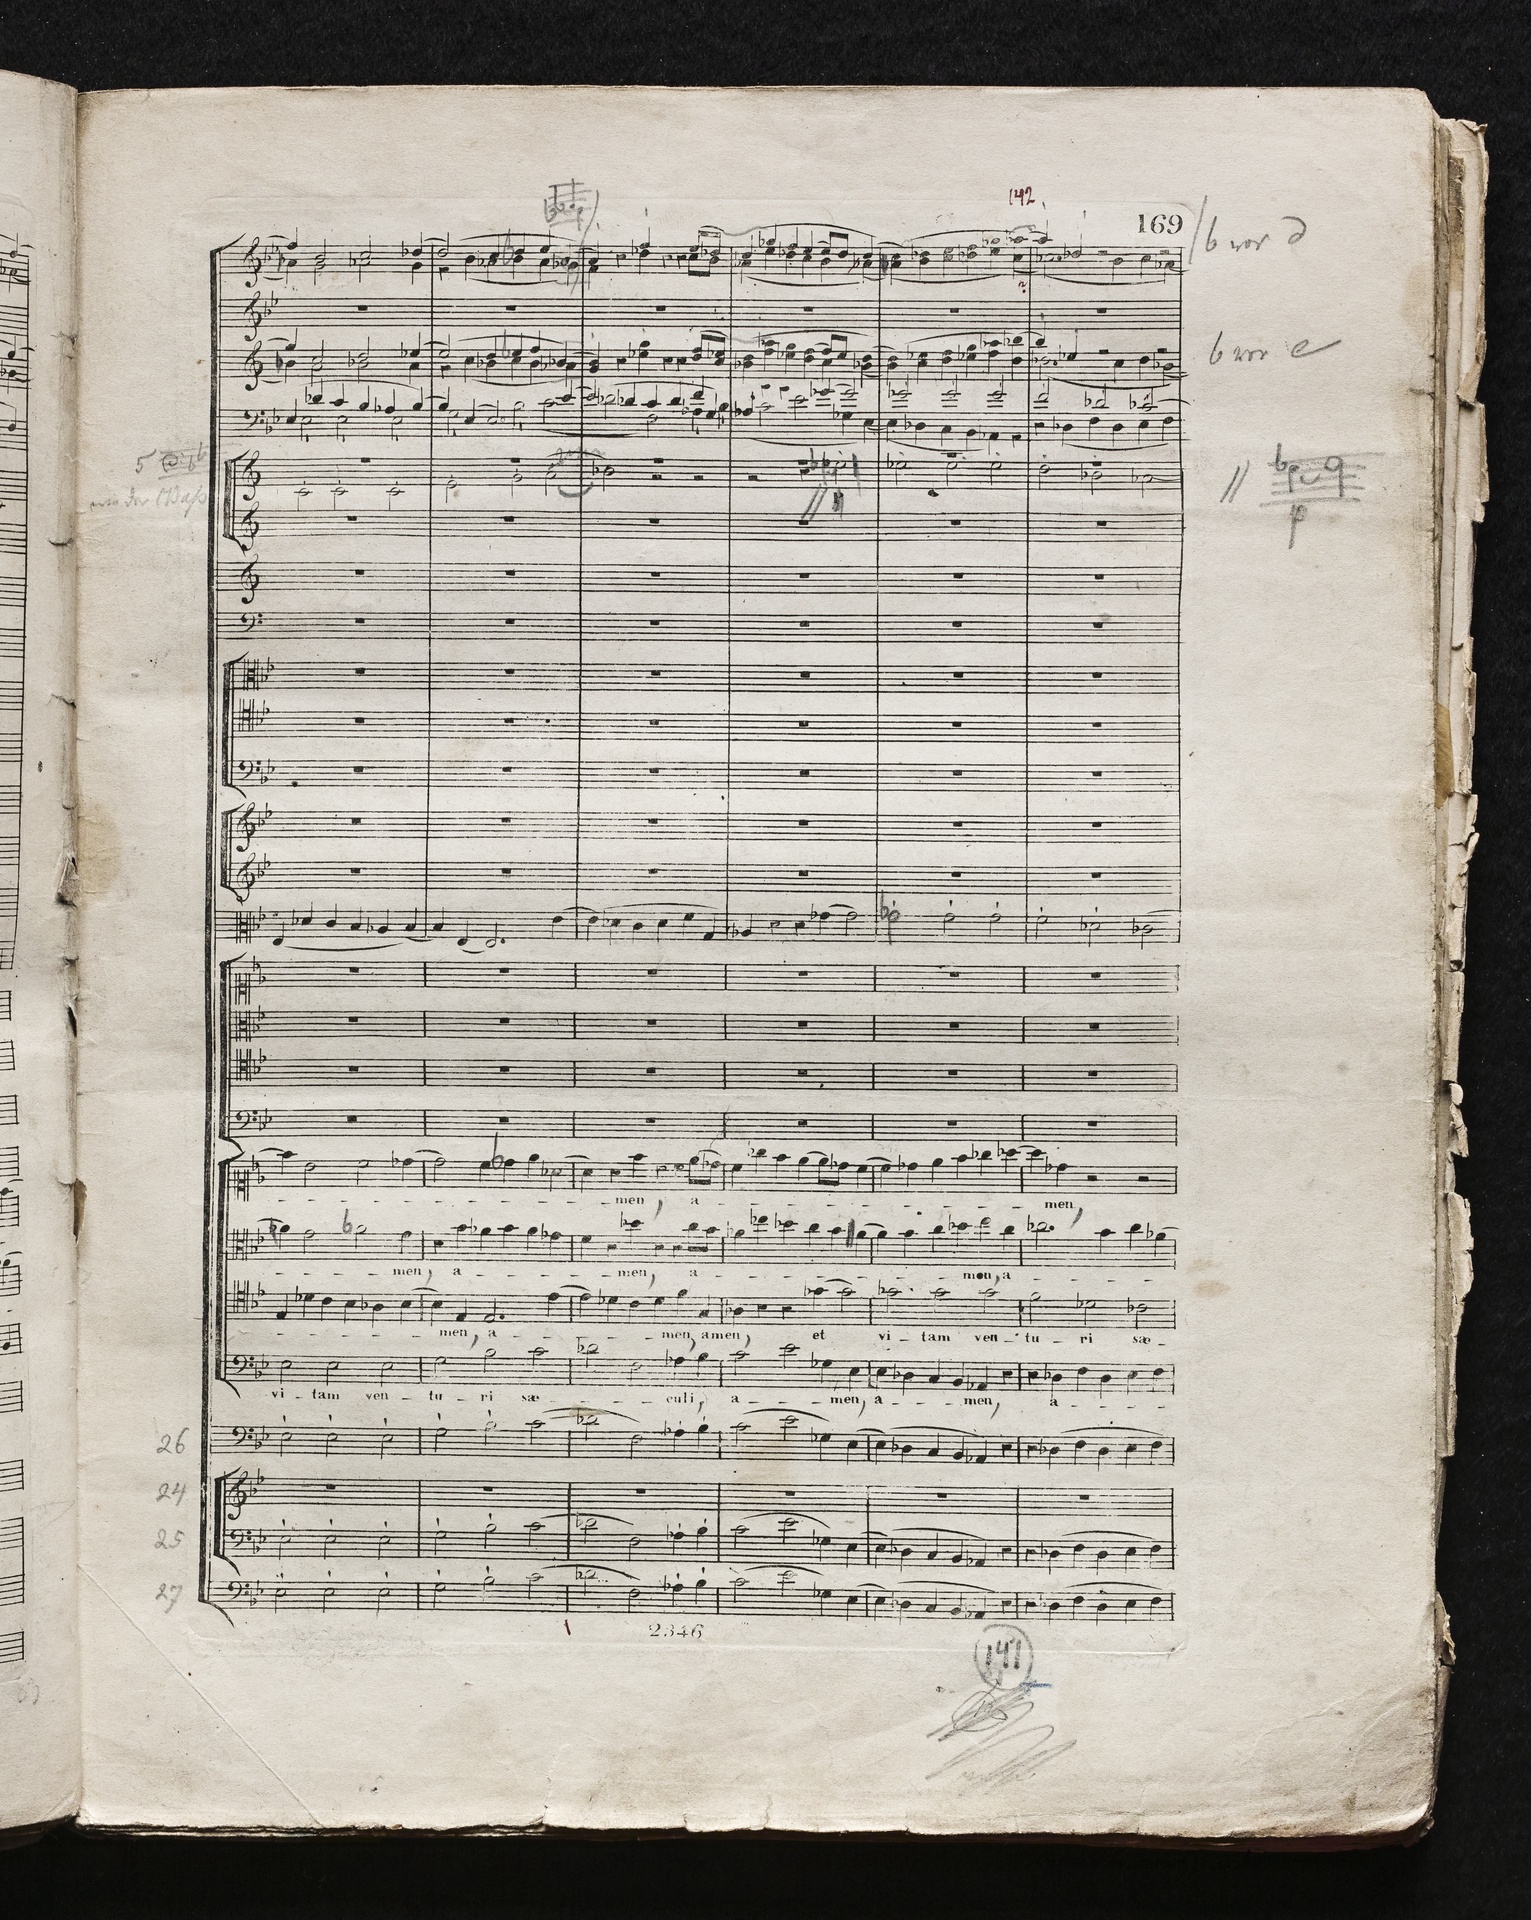 142.
169
b vor d
b vor e
men, a men,
men, a men, a men, a
men, a men, amen, et vi tam ven tu ri sæ
vi tam ven tu ri sæ culi, a men, a men, a
26
24
25
27
2346
141